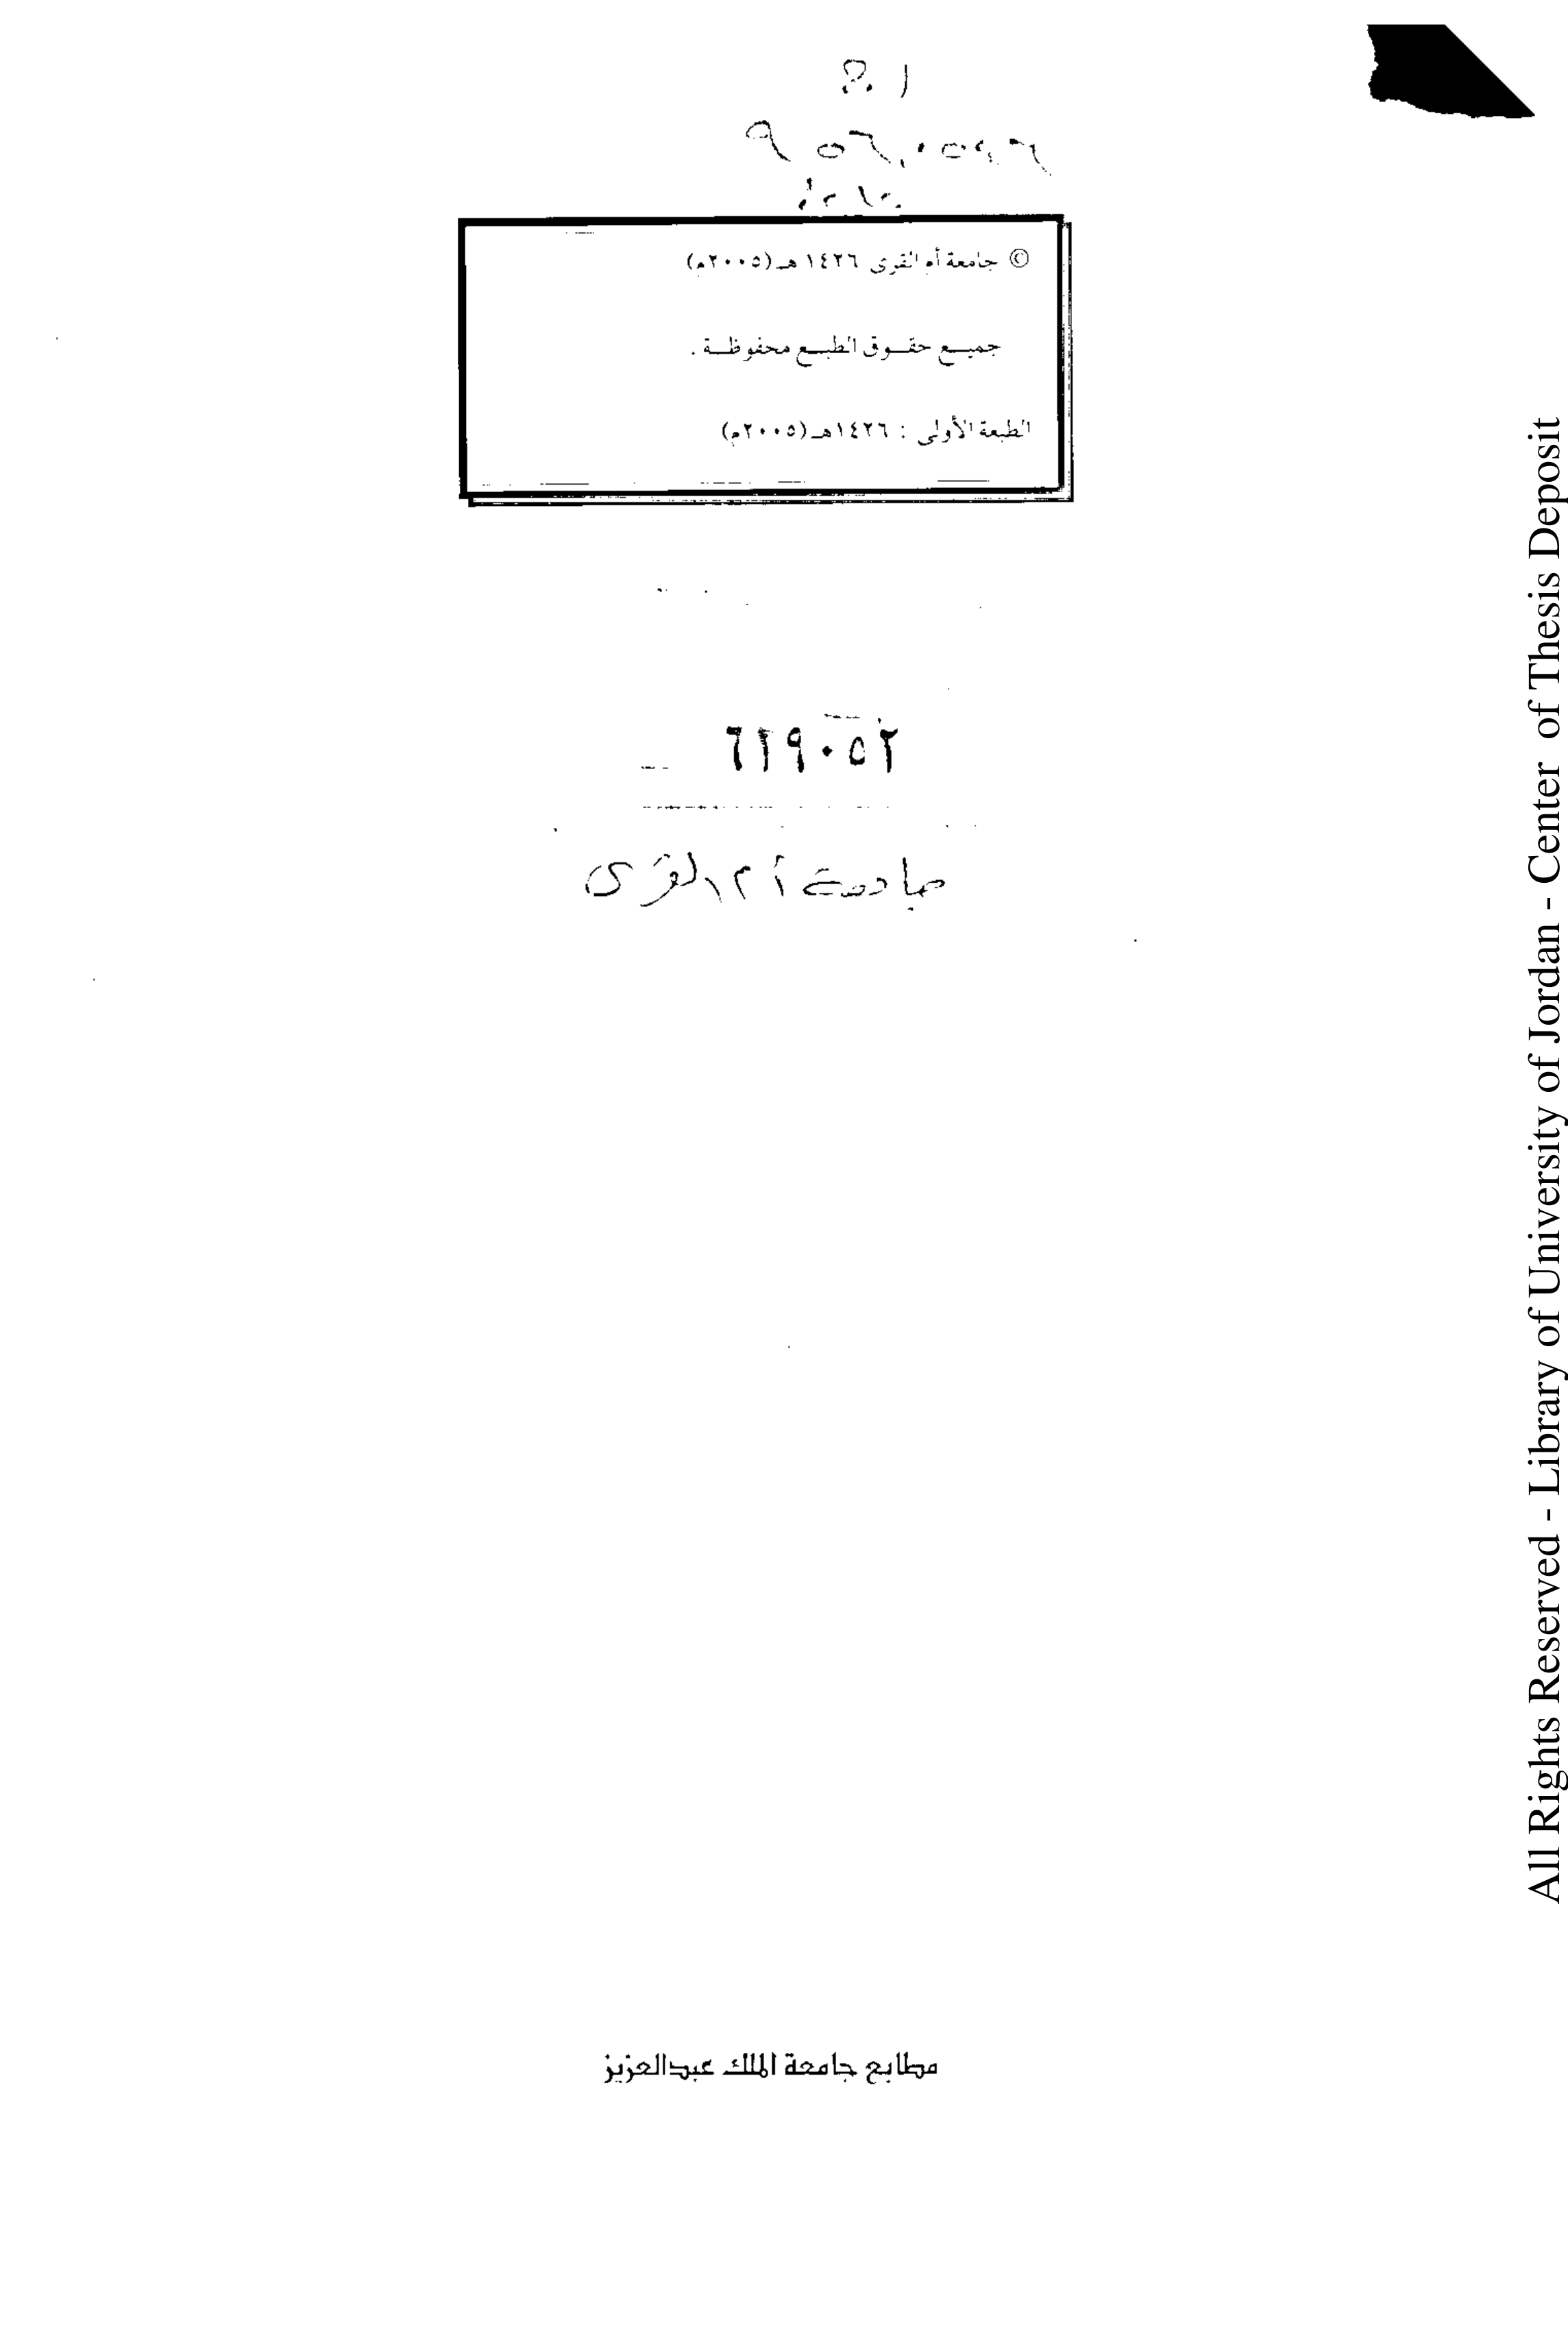 © جامعة أم القرى ١٤٢٦ هـ (٢٠٠٥م)
جميع حقوق الطبع محفوظة .
الطبعة الأولى : ١٤٢٦هـ (٢٠٠٥م)
٦٢٩٠٥٢
جامعة أم القرى
مطابع جامعة الملك عبدالعزيز
All Rights Reserved - Library of University of Jordan - Center of Thesis Deposit